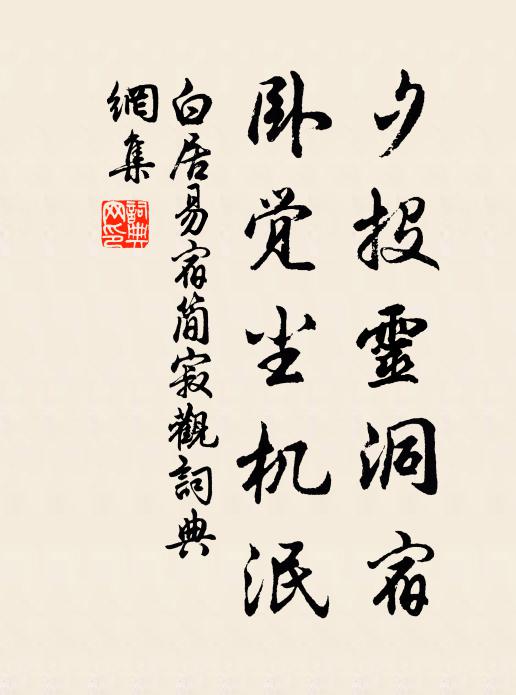 夕投靈洞宿
卧觉尘机泯
白居易宿简寂觀詞典
網集
詞典网印